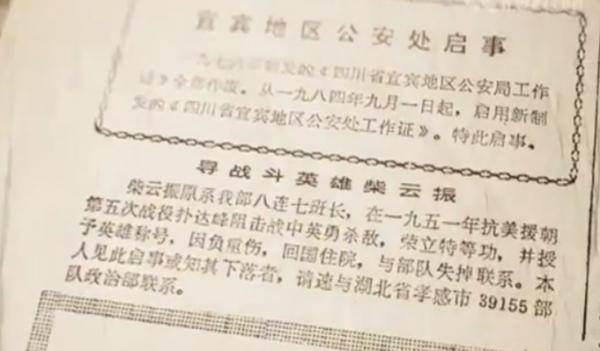 宜宾地区公安处启事
一九七六年制发的《四川省宜宾地区公安局工作
证》全部作废。从一九八四年九月一日起，启用新制
发的《四川省宜宾地区公安处工作证》。特此启事。
寻战斗英雄柴云振
柴云振原系我部八连七班长，在一九五一年抗美援朝
第五次战役扑达峰阻击战中英勇杀敌，荣立特等功，并授
予英雄称号，因负重伤，回国住院，与部队失掉联系。本
人见此启事或知其下落者，请速与湖北省孝感市39155部
队政治部联系。